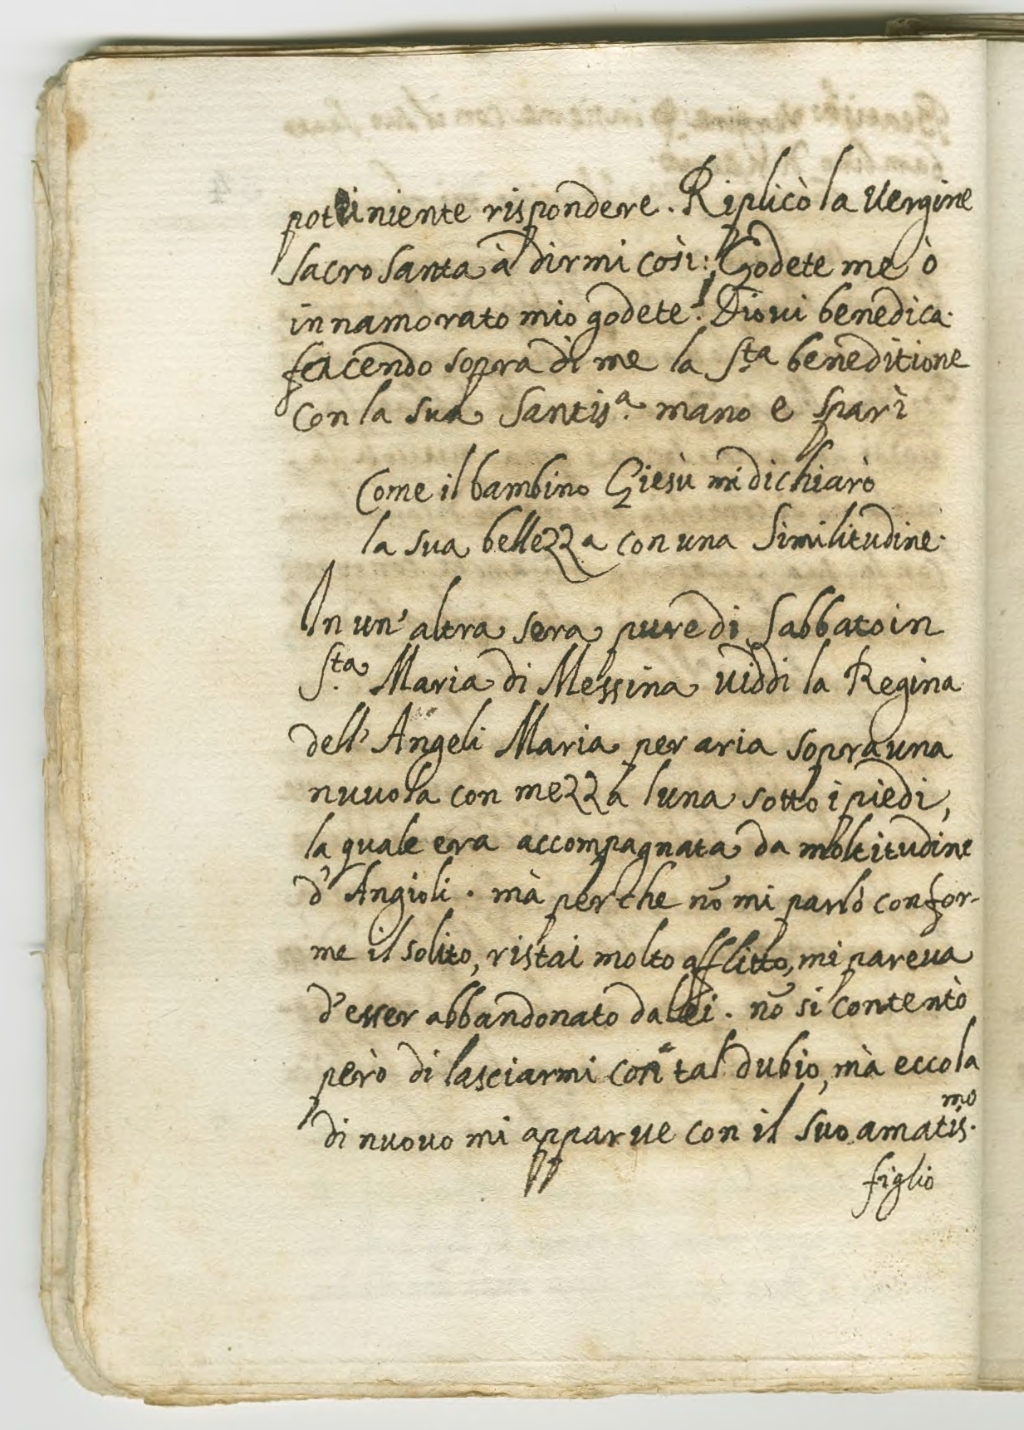 potei niente rispondere. Riplicò la Vergine
sacro santa à dirmi così: Godete me ò
innamorato mio godete! Dio vi benedica.
facendo sopra di me la Sta. beneditione
con la sua Santisa. mano e sparì
Come il bambino Giesù mi dichiarò
la sua bellezza con una Similitudine.
In un' altra sera pure di Sabbato in
Sta. Maria di Messina viddi la Regina
dell' Angeli Maria per aria sopra una
nuvola con mezza luna sotto i piedi,
la quale era accompagnata da moltitudine
d' Angioli. mà perche nõ mi parlò confor-
me il solito, ristai molto afflitto, mi pareva
d'esser abbandonato da lei. nõ si contentò
però di lasciarmi con tal dubio, mà eccola
di nuovo mi apparve con il suo amatis.mo
figlio